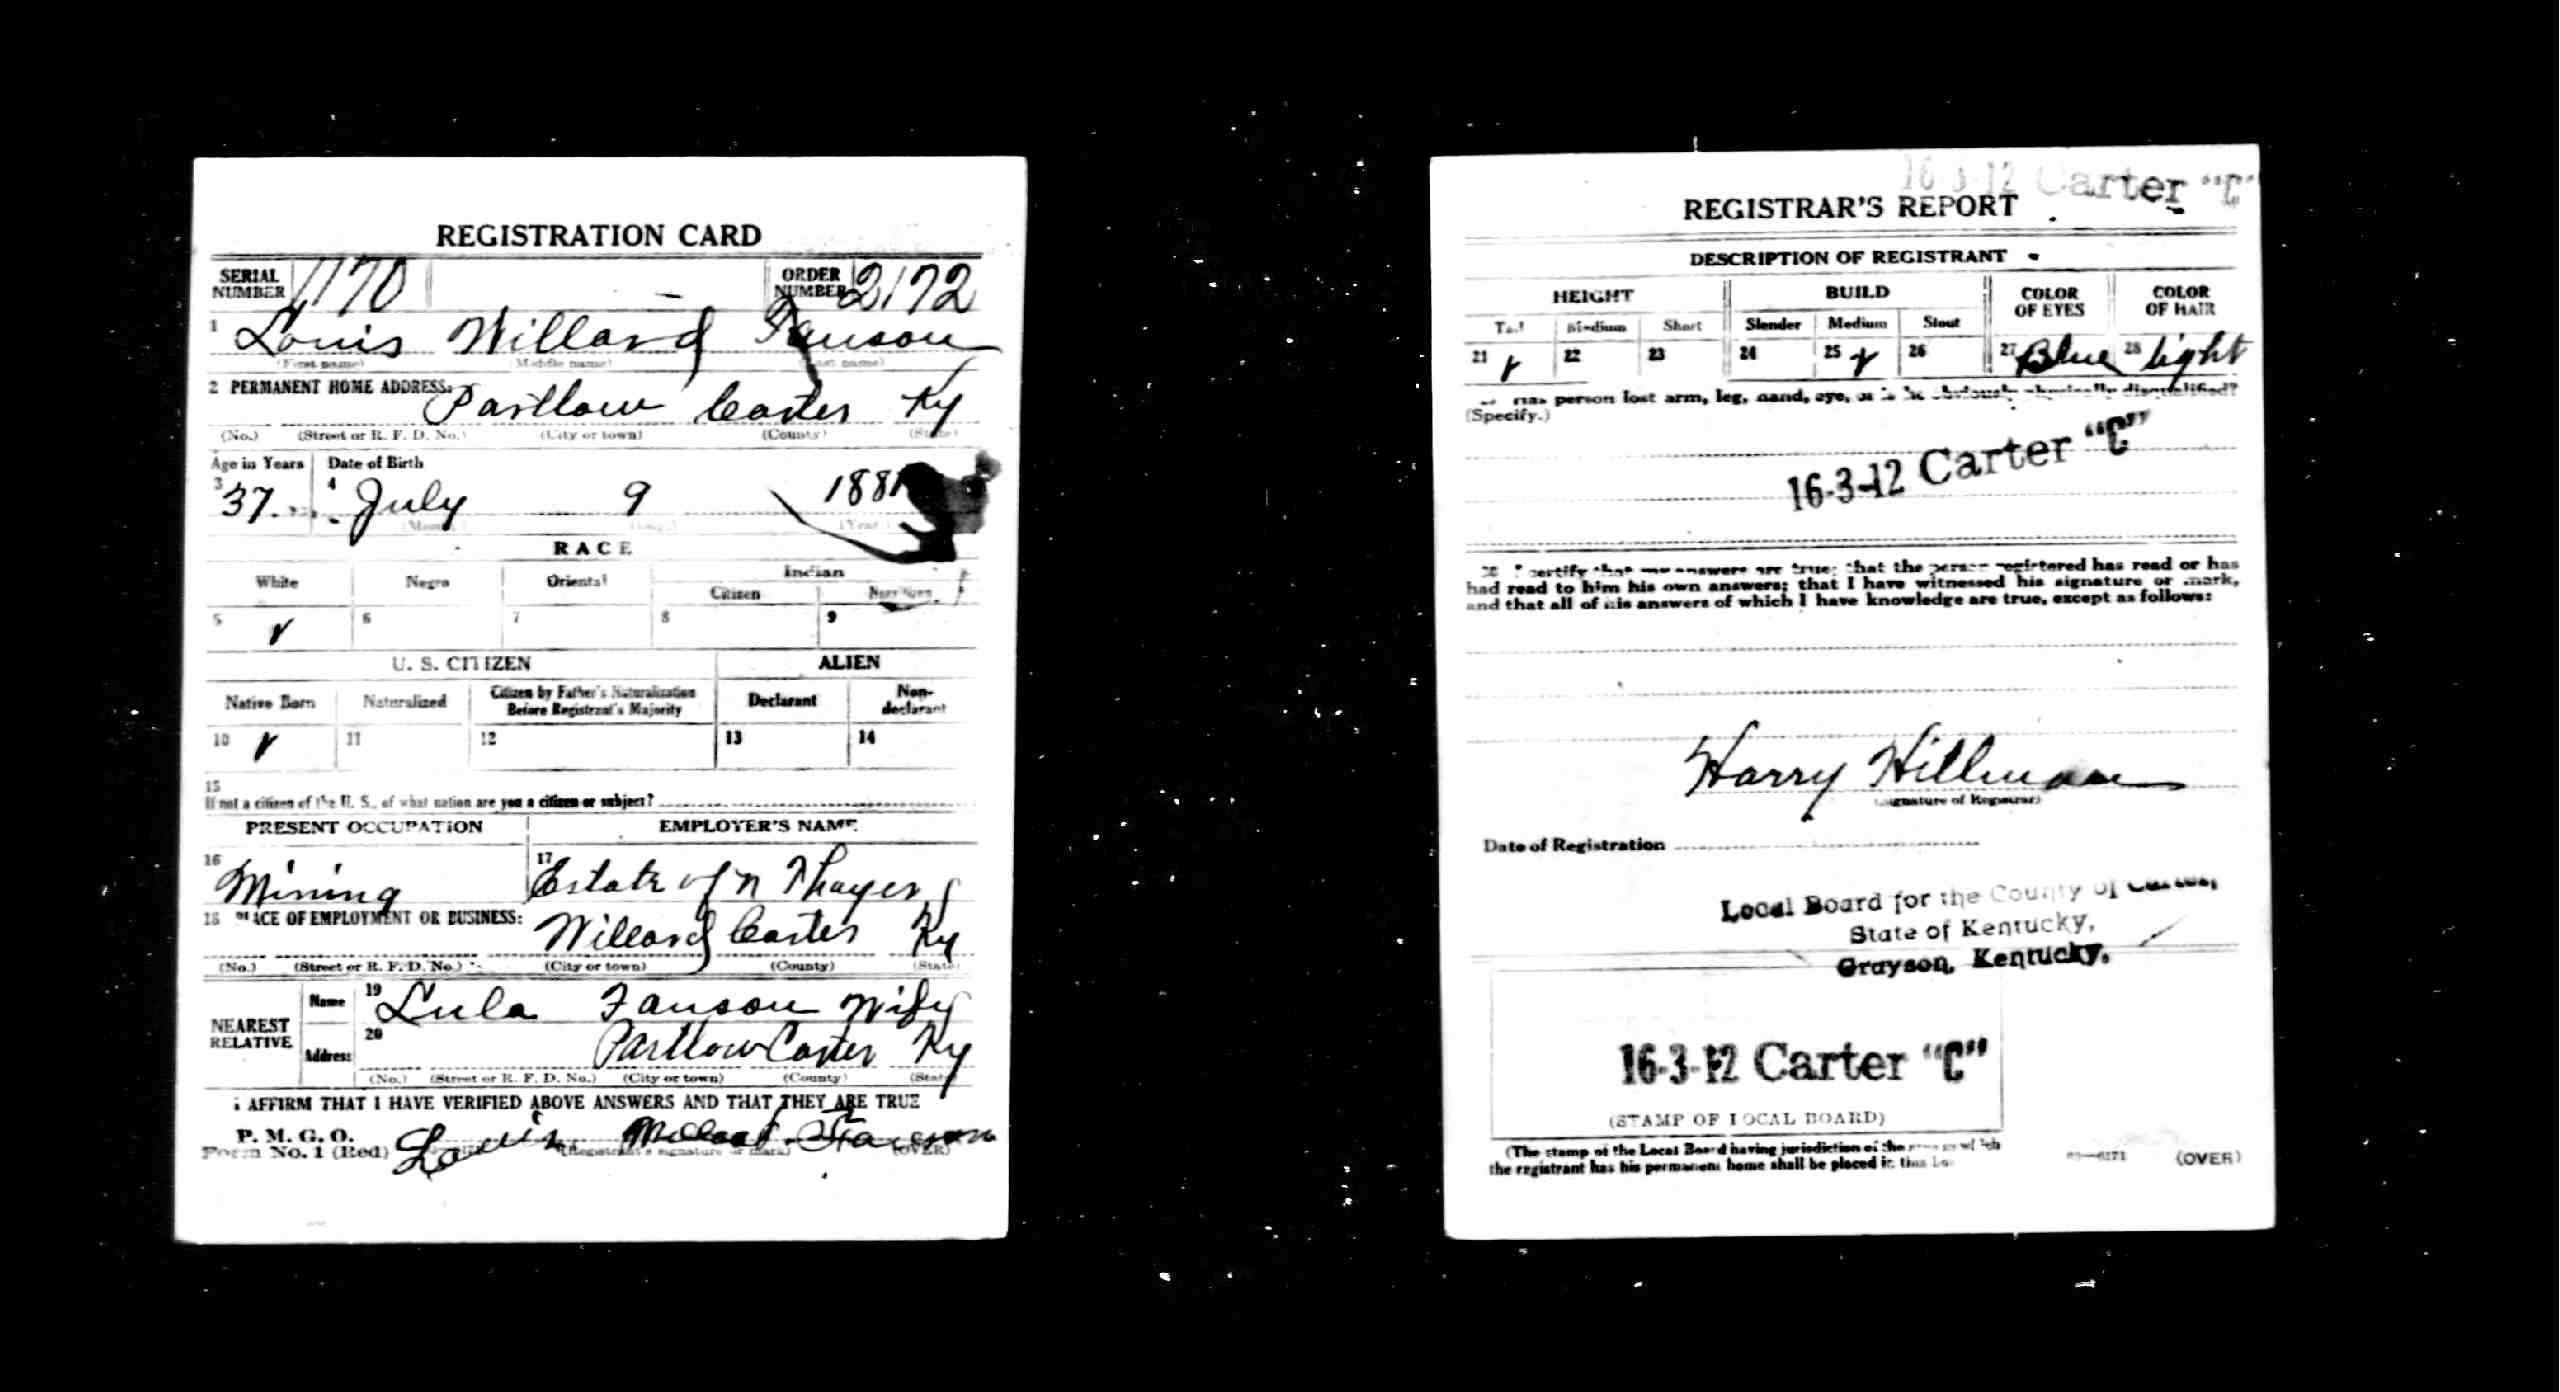 REGISTRATION CARD
SERIAL NUMBER 1170 ORDER NUMBER 2172
1 Louis Willard Fanson
(First name) (Middle name) (Last name)
2 PERMANENT HOME ADDRESS: Partlow Carter Ky
(No.) (Street or R. F. D. No.) (City or town) (County) (State)
Age in Years Date of Birth
3 37. 4 July 9 1881
(Month) (Day) (Year)
RACE
White Negro Oriental Indian
Citizen Noncitizen
5 6 7 8 9
U. S. CITIZEN ALIEN
Native Born Naturalized Citizen by Father's Naturalization Before Registrant's Majority Declarant Non-declarant
10 11 12 13 14
15
If not a citizen of the U. S., of what nation are you a citizen or subject?
PRESENT OCCUPATION EMPLOYER'S NAME
16 Mining 17 Estate of N Thayer
18 PLACE OF EMPLOYMENT OR BUSINESS: Willard Carter Ky
(No.) (Street or R. F. D. No.) (City or town) (County) (State)
NEAREST RELATIVE Name 19 Lula Fanson Wife
Address 20 Partlow Carter Ky
(No.) (Street or R. F. D. No.) (City or town) (County) (State)
I AFFIRM THAT I HAVE VERIFIED ABOVE ANSWERS AND THAT THEY ARE TRUE
P. M. G. O.
Form No. 1 (Red) Louis Willard Fanson
(Registrant's signature or mark) (OVER)
16-3-12 Carter "C"
REGISTRAR'S REPORT
DESCRIPTION OF REGISTRANT
HEIGHT BUILD COLOR OF EYES COLOR OF HAIR
Tall Medium Short Slender Medium Stout
21 22 23 24 25 26 27 Blue 28 light
person lost arm, leg, hand, eye, or is he obviously physically disqualified?
(Specify.)
16-3-12 Carter "C"
30 I certify that my answers are true; that the person registered has read or has
had read to him his own answers; that I have witnessed his signature or mark,
and that all of his answers of which I have knowledge are true, except as follows:
Harry Hillman
(Signature of Registrar)
Date of Registration
Local Board for the County of Carter,
State of Kentucky,
Grayson, Kentucky.
16-3-12 Carter "C"
(STAMP OF LOCAL BOARD)
(The stamp of the Local Board having jurisdiction of the area in which
the registrant has his permanent home shall be placed in this box.)
(OVER)